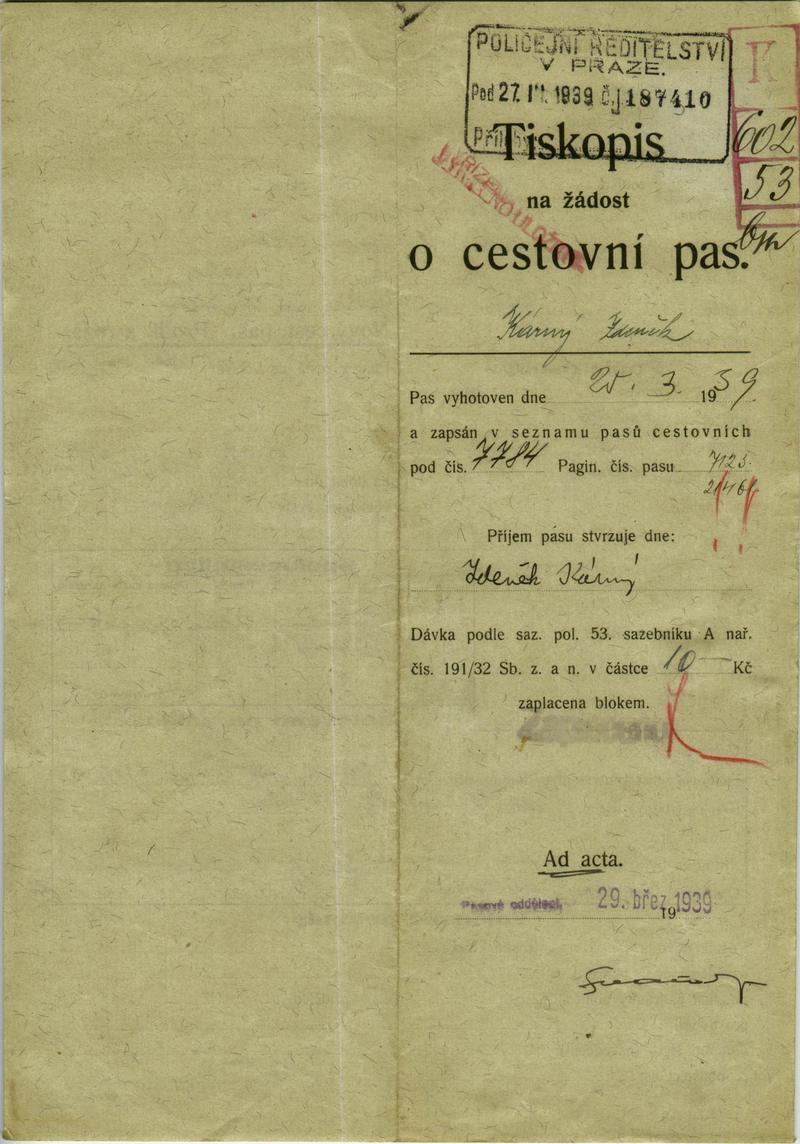 POLICEJNÍ ŘEDITELSTVÍ
V PRAZE.
Pod 27. 1939 č.j. 187410
K
602
53
Tiskopis
na žádost
o cestovní pas.
Kárný Zdeněk
Pas vyhotoven dne 25. 3. 1939.
a zapsán v seznamu pasů cestovních
pod čís. 7784 Pagin. čís. pasu 7125.
Příjem pasu stvrzuje dne:
Zdeněk Kárný
Dávka podle saz. pol. 53. sazebníku A nař.
čís. 191/32 Sb. z. a n. v částce 10 Kč
zaplacena blokem.
Ad acta.
Pasové oddělení. 29. břez. 1939
19